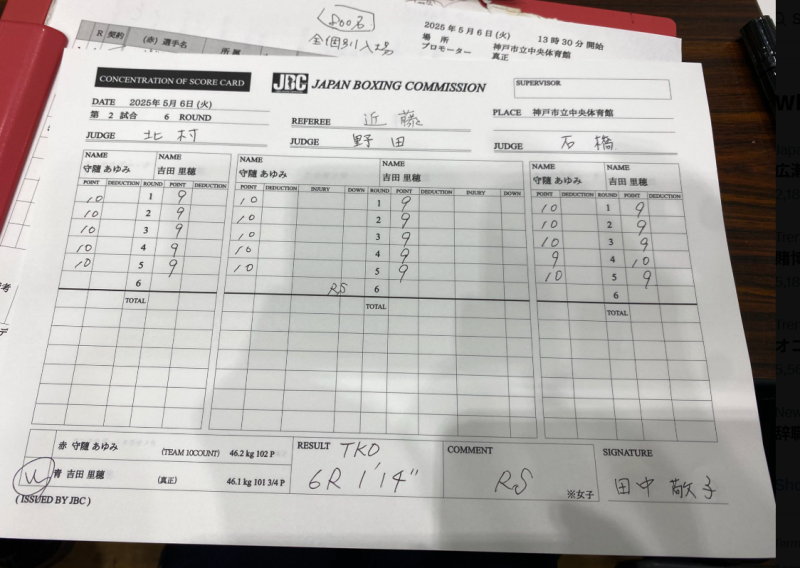 R 契約 (赤) 選手名 所属
500名
全個別入場
2025年5月6日(火) 13時30分 開始
場所 神戸市立中央体育館
プロモーター 真正
CONCENTRATION OF SCORE CARD
JBC JAPAN BOXING COMMISSION
SUPERVISOR
DATE 2025年5月6日(火)
第 2 試合 6 ROUND
REFEREE 近藤
PLACE 神戸市立中央体育館
JUDGE 北村
JUDGE 野田
JUDGE 石橋
NAME NAME NAME NAME NAME NAME
守隨 あゆみ 吉田 里穂 守隨 あゆみ 吉田 里穂 守隨 あゆみ 吉田 里穂
POINT DEDUCTION ROUND POINT DEDUCTION POINT DEDUCTION INJURY DOWN ROUND POINT DEDUCTION INJURY DOWN POINT DEDUCTION ROUND POINT DEDUCTION
10 1 9 10 1 9 10 1 9
10 2 9 10 2 9 10 2 9
10 3 9 10 3 9 10 3 9
10 4 9 10 4 9 9 4 10
10 5 9 10 5 9 10 5 9
6 RS 6 6
TOTAL TOTAL TOTAL
赤 守隨 あゆみ (TEAM 10COUNT) 46.2 kg 102 P
青 吉田 里穂 (真正) 46.1 kg 101 3/4 P
W
RESULT TKO
6R 1'14"
COMMENT
RS
※女子
SIGNATURE
田中 敬子
( ISSUED BY JBC )